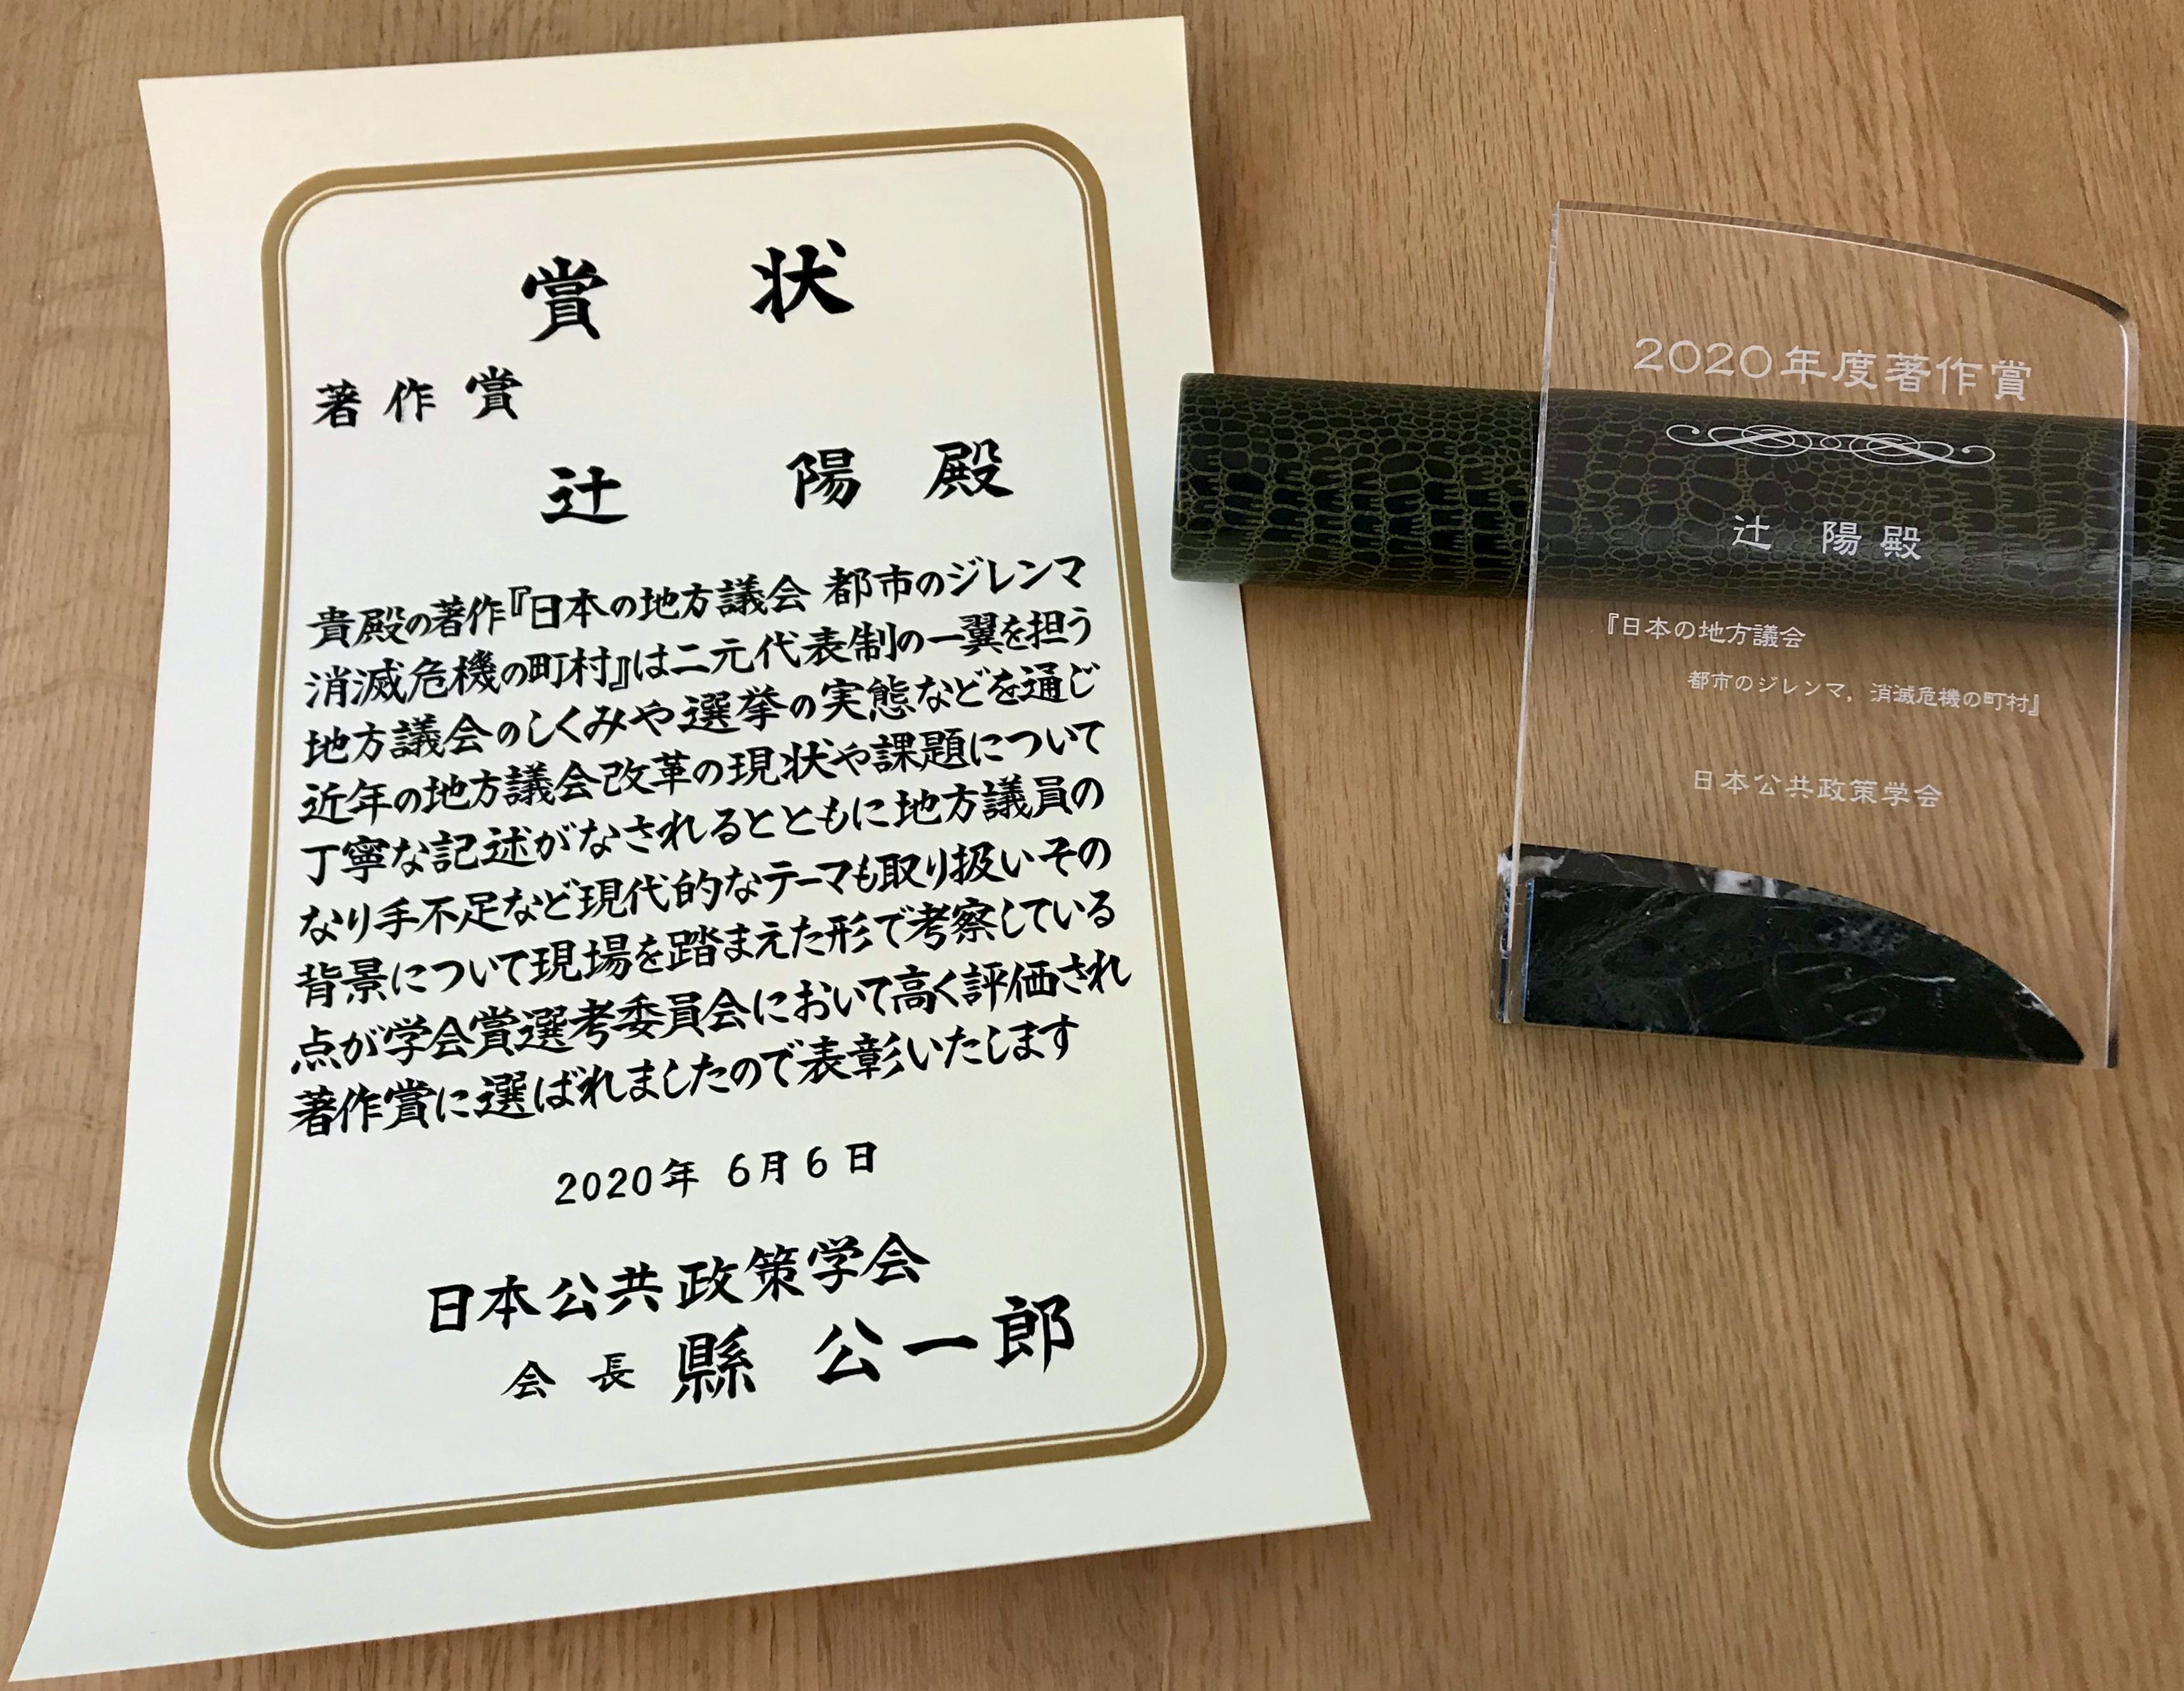 賞状
著作賞
辻 陽 殿
貴殿の著作『日本の地方議会 都市のジレンマ
消滅危機の町村』は二元代表制の一翼を担う
地方議会のしくみや選挙の実態などを通じ
近年の地方議会改革の現状や課題について
丁寧な記述がなされるとともに地方議員の
なり手不足など現代的なテーマも取り扱いその
背景について現場を踏まえた形で考察している
点が学会賞選考委員会において高く評価され
著作賞に選ばれましたので表彰いたします
2020年 6月6日
日本公共政策学会
会長 縣 公一郎
2020年度著作賞
辻 陽 殿
『日本の地方議会
都市のジレンマ，消滅危機の町村』
日本公共政策学会